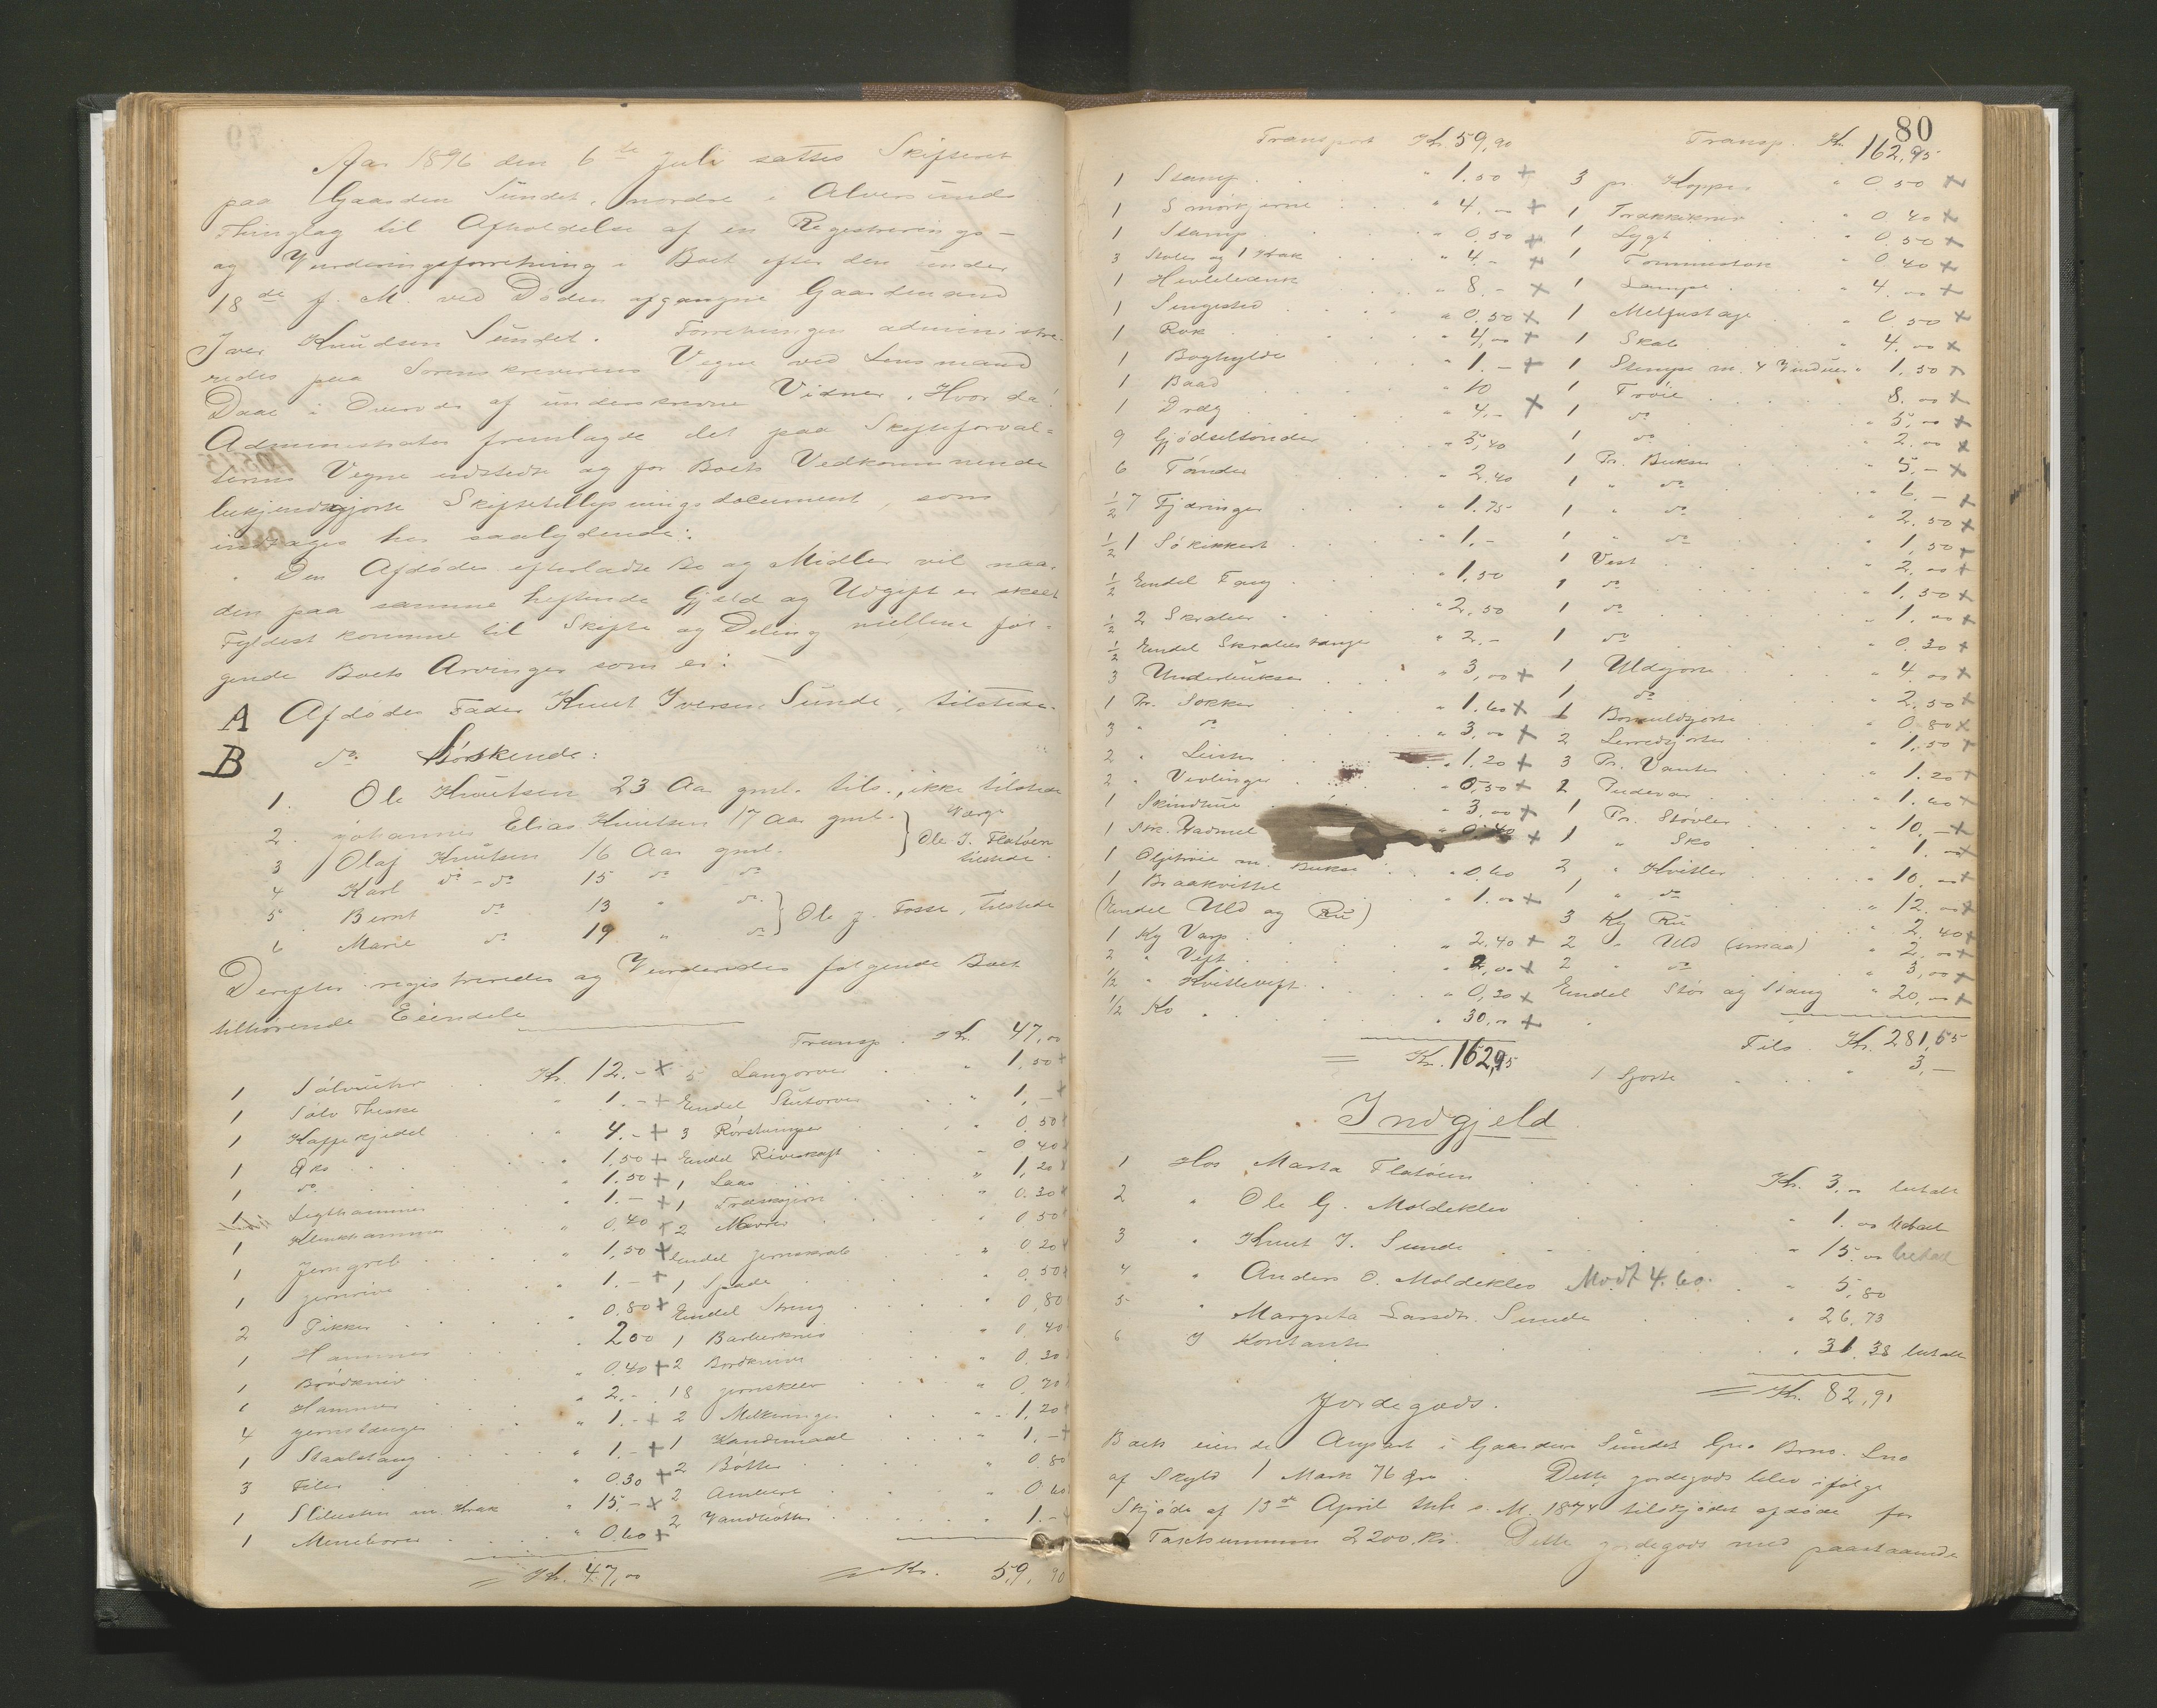 Aar 1896 den 6te Juli sattes Skifteret
paa Gaarden Sundet, nordre i Alversunds
Thinglag til Afholdelse af en Registrerings-
og Vurderingsforretning i Boet efter den under
18de f. M. ved Døden afgangne Gaardmand
Iver Knudsen Sundet. Forretningen administre-
redes paa Sorenskriverens Vegne ved Lensmand
Daae i Overvær af underskrevne Vidner. Hvor da:
Administrator fremlagde det paa Skifteforval-
terens Vegne udstedte og for Boets Vedkommende
bekjendtgjorte Skiftetillysningsdocument, som
indtages her saalydende:
Den Afdødes efterladte Bo og Midler vil naar
den paa samme heftende Gjæld og Udgift er skeet
Fyldest komme til Skifte og Deling mellem føl-
gende Boets Arvinger som er:
A Afdødes Fader Knut Iversen Sunde, tilstede.
B do Søskende:
1. Ole Knutsen 23 Aar gml. tils., ikke tilstede
2. Johannes Elias Knutsen 17 Aar gml. Værge
3 Olaf Knutsen 16 Aar gml. Ole I. Flatøen
tilstede
4 Karl do - do 15 do do
5 Bernt do 13 " do Ole J. Fosse, tilstede
6 Marie do 19 " do
Derefter registreredes og Vurderedes følgende Boet
tilhørende Eiendele
Transp. Kr. 47,00
1 Sølvuhr Kr. 12.- + 5 Langorver " 1,50 +
1 Sølv Theske " 1.- + Endel Stutorver " 1,- +
1 Kaffekjedel 4.- + 3 Rørstumper " 0.50 +
1 Øks " 1,50 + Endel Riveskaft 0 40
1 do " 1.50 + 1 Laas " 1,20
1 Legthammer " 1.- + 1 0.30
1 Klinkhammer " 0,40 + 2 " 0.50
1 Jerngreb " 1,50 + Endel Jernskrab " 0.20
1 Jernrive " 1.- + 1 Spade " 0.50
2 Pikker 0,80 + Endel Streng 0,80
1 Hammer " 2 00 1 Barberkniv " 0. 40
1 Brødkniv " 0.40 + 2 Bordknive " 0.30
1 Hammer " 2.- 18 Jernskeer " 0,70
4 Jernstænger " 1.- + 2 Melkeringe " 1,20
1 Staalstang " 1.- + 1 Kandemaal 1,- +
3 Filer " 0.30 + 2 Bøtter " 0.80
1 Slibesten m. Krak " 15,- + 2 Ambert 0 60
1 Minebores " 0.60 + 2 Vandbøtter " 1.-
= Kr. 47,00 = Kr. 59,90
80
Transport Kr. 59,90 Transp. Kr. 162,95
1 Stamp " 1.50 + 3 pr. Kopper " 0 50 +
1 Smørkjerne " 4.- + 1 " 0 40 +
1 Stamp " 0,50 + 1 Lygt " 0 50 +
3 Stoler og 1 Krak " 4.- + 1 Tommestok " 0 40 +
1 " 8.- + 1 Lampe " 4.00 +
1 Sengested " 0.50 + 1 Melfustage " 0 50 +
1 Rok " 4,00 + 1 Skab " 4.00 +
1 Boghylde " 1.- + 1 m. 4 Vinduer " 1.50 +
1 Baad " 10 1 Trøie 8.00 +
1 Dræg " 4.- + 1 do " 5,00 +
9 Gjødseltønder " 5,40 1 do " 2.00 +
6 Tønder " 2.40 1 Pr. Buxer " 5.- +
1/2 7 Fjæringer " 1.75 1 " do " 6.- +
1/2 1 Søkikkert " 1.- 1 " do " 2.50 +
1/2 Endel Taug " 1,50 1 " do " 1,50 +
1/2 2 Skråer " 2.50 1 Vest " 2.00 +
1/2 Endel " 2.- 1 do " 1.50 +
3 Underbukser " 3,00 + 1 do " 1.00 +
1 Pr. Sokker " 1.60 + 1 do " 0.30 +
3 " do " 3,00 + 1 Uldgjorte " 4.00 +
2 " Leister " 1.20 + 1 do " 2.50 +
2 " Vevlinger " 0,50 + 1 Bomuldsjorte " 0.80 +
1 Skindhue " 3,00 + 2 Lerredsjorter " 1,50 +
1 Stk. Vadmel " 0.40 + 3 Pr. Vanter " 1.20 +
1 Oljetrøie m. Bukse " 0.60 2 Pudevar " 1.60 +
1 Braakvittel " 1.00 + 1 Pr. Støvler " 10,- +
(Endel Uld og Ru) 1 " Sko " 1.- +
1 Kg Varp " 2.40 + 2 " Kvitler " 10.00 +
2 " Veft " 2,00 + 1 " do " 12.00 +
1/2 " Kvitleveft " 0,30 + 3 Kg Ru " 2.40 +
1/2 Ko " 30,00 + 2 " Uld (smaa) " 2.00 +
2 " do " 3,00 +
Endel Stør og Stang " 20,00 +
= Kr. 162,95 Tils. Kr. 281,65
1 Gjorte " 3,-
Indgjeld
1 Hos Marta Flatøen Kr. 3,00 betalt
2 " Ole G. Moldeklev " 1.00 betalt
3 " Knut I. Sunde " 15.00 betalt
4 " Anders O. Moldeklev Modt 4.60. " 5,80
5 " Margreta Larsdtr. Sunde " 26,73
6 I Kontanter " 31.38 betalt
= Kr. 82,91
Jordegods.
Boets eiende Anpart i Gaarden Sundet Gno Brno. Lno
af Skyld 1 Mark 76 Øre. Dette Jordegods blev ifølge
Skjøde af 13de April thl. s. M. 1894 tilskjødet afdøde for
Taxtsummen 2200 Kr. Dette Jordegods med paastaaende